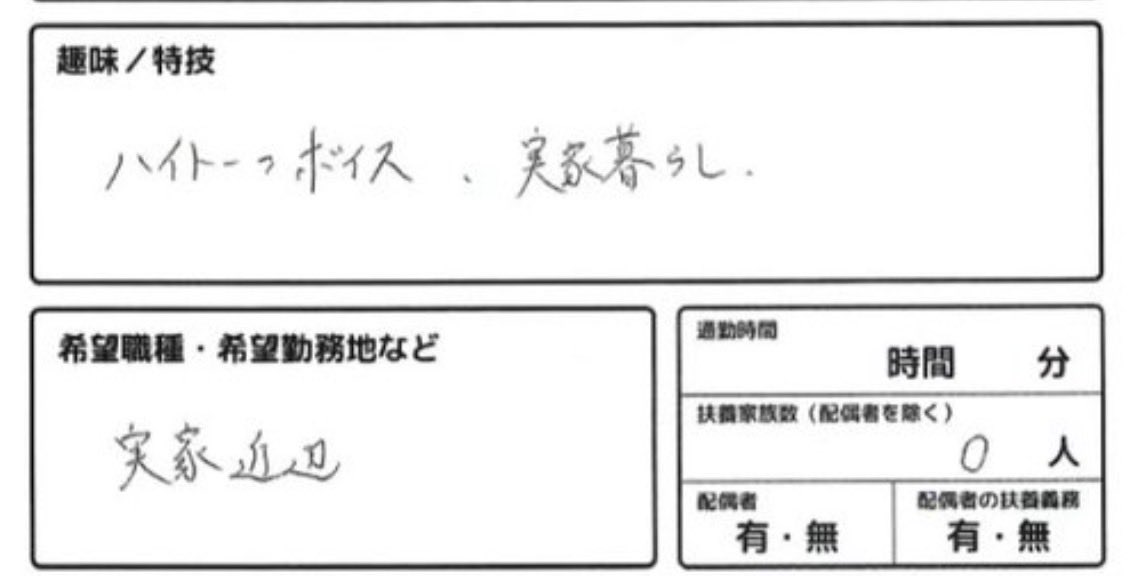 趣味/特技
ハイトーンボイス、実家暮らし.
希望職種・希望勤務地など
実家近辺
通勤時間
時間 分
扶養家族数(配偶者を除く)
0 人
配偶者
有・無
配偶者の扶養義務
有・無